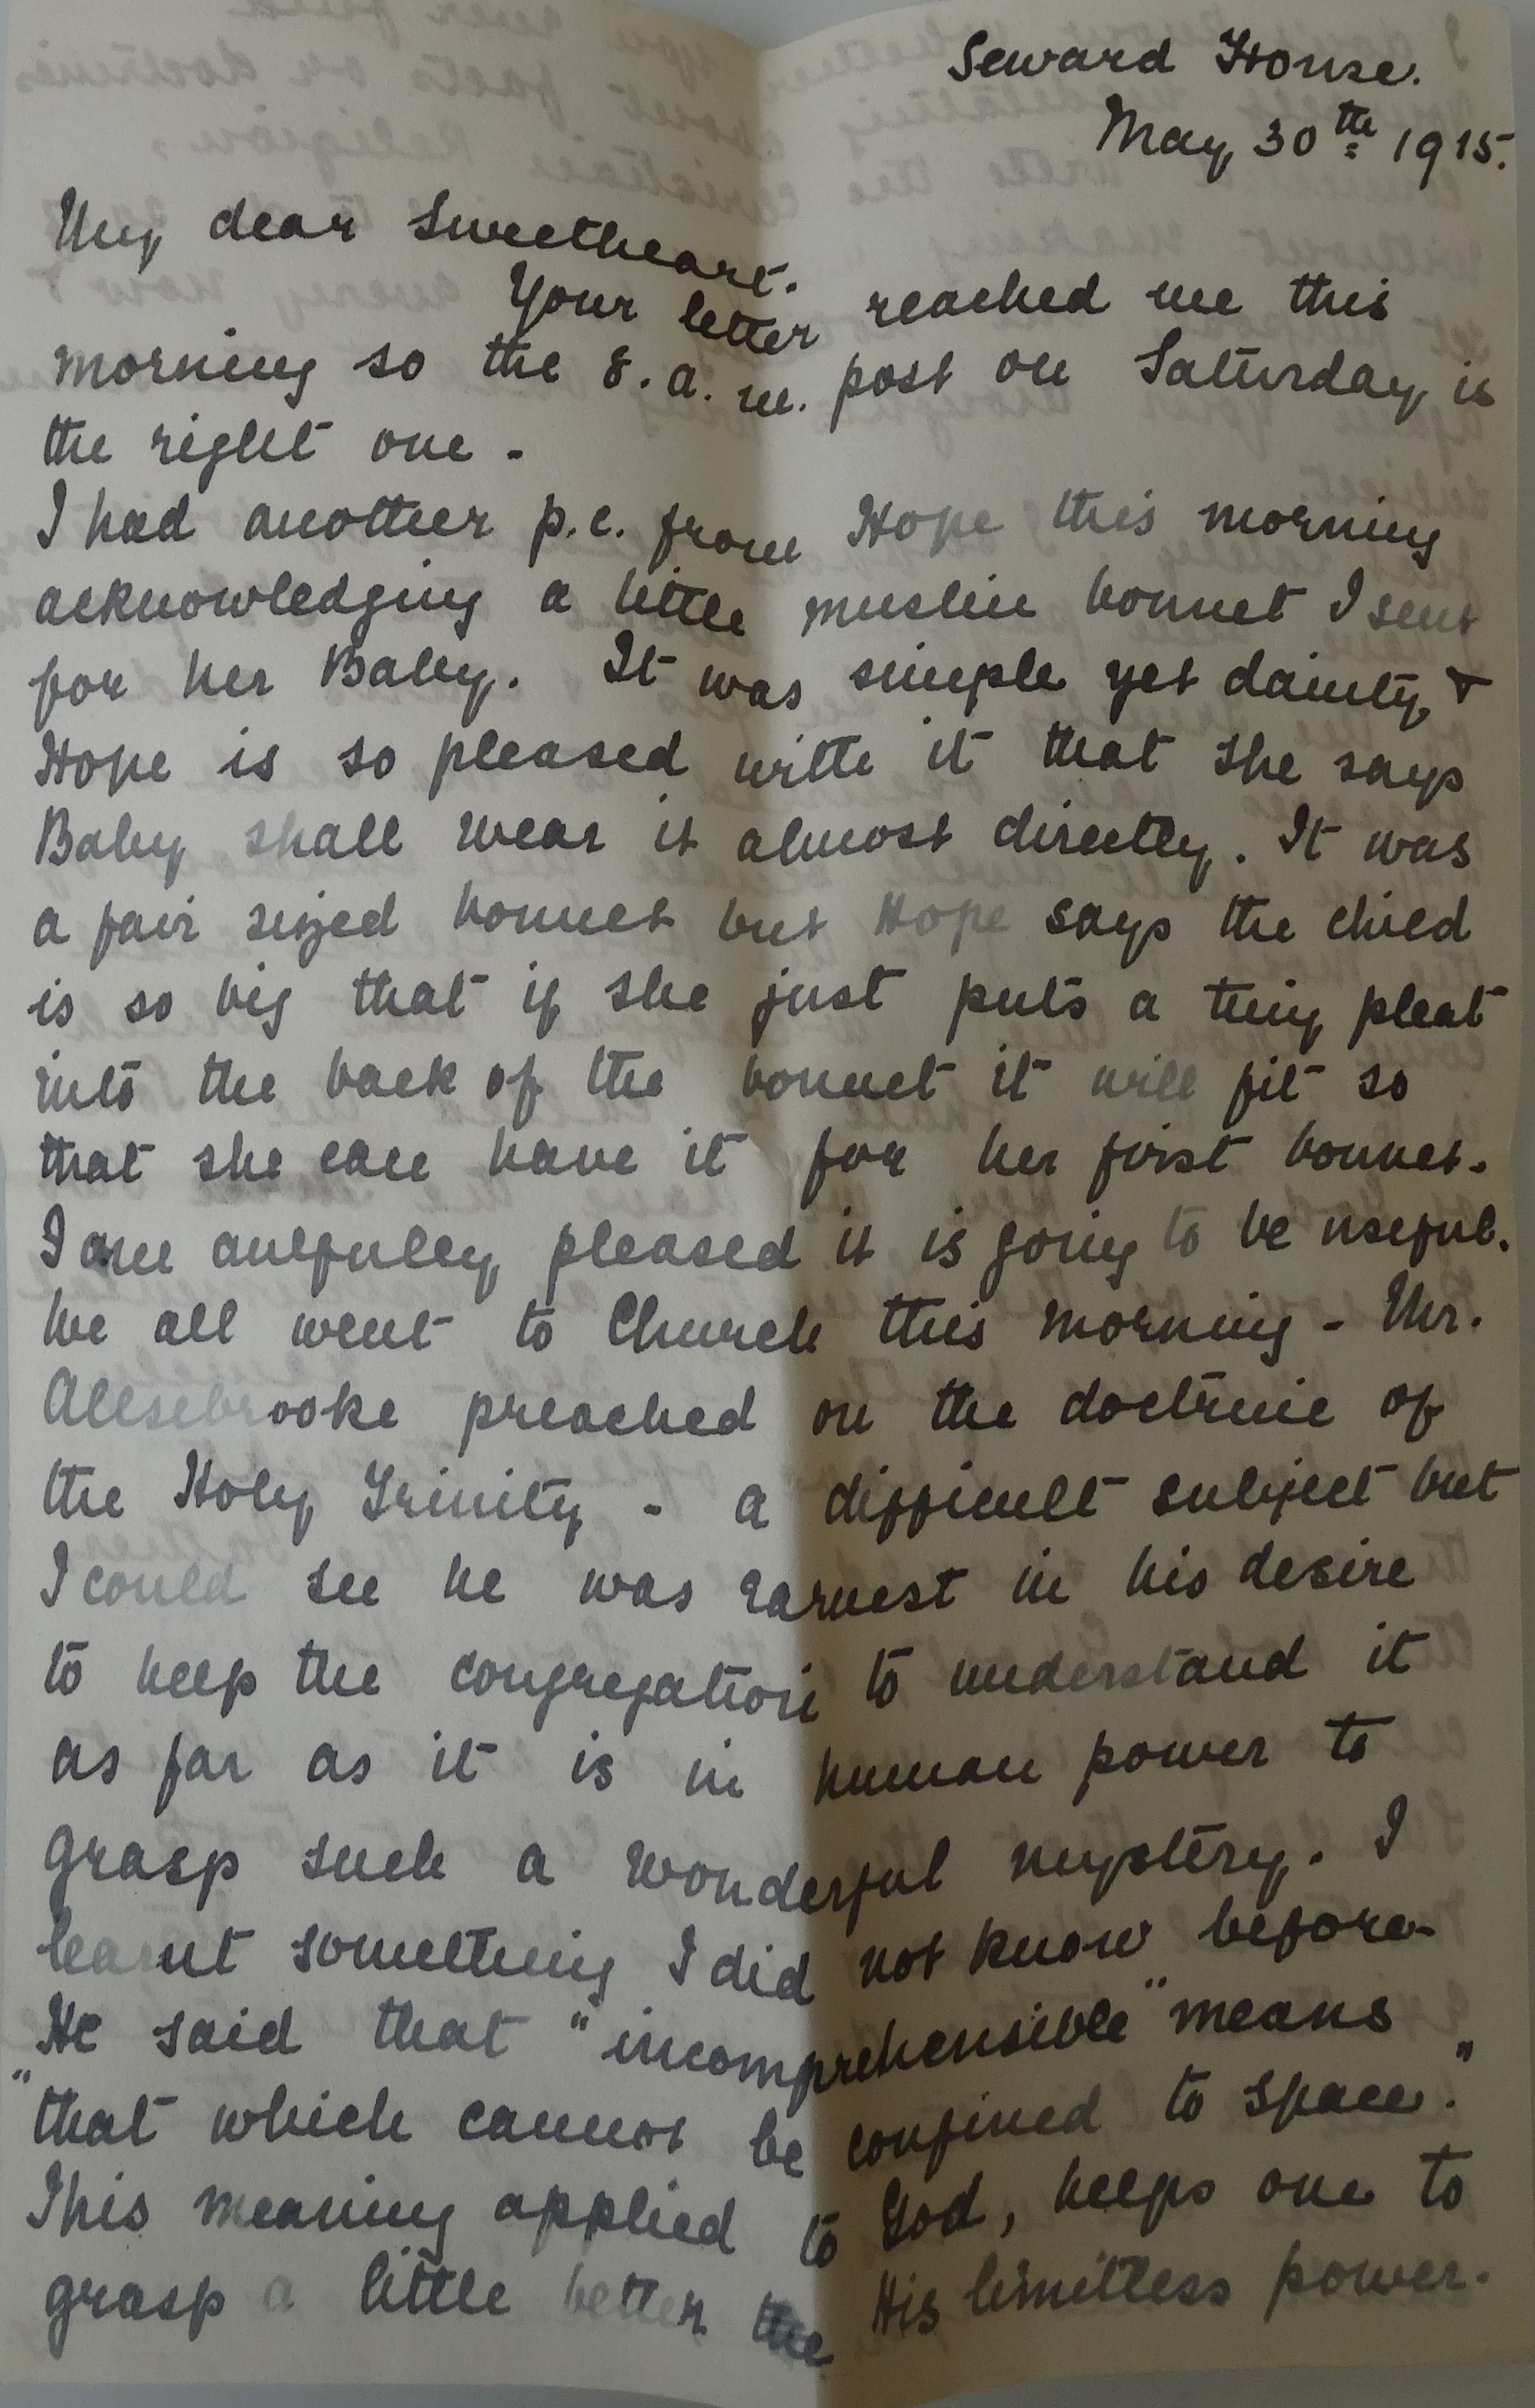 Seward House.
May 30th 1915.
My dear Sweetheart.
Your letter reached me this
morning so the 8. a. m. post on Saturday is
the right one -
I had another p.c. from Hope this morning
acknowledging a little muslin bonnet I sent
for her Baby. It was simple yet dainty, &
Hope is so pleased with it that she says
Baby shall wear it almost directly. It was
a fair sized bonnet but Hope says the child
is so big that if she just puts a tiny pleat
into the back of the bonnet it will fit so
that she can have it for her first bonnet.
I am awfully pleased it is going to be useful.
We all went to Church this morning - Mr.
Allsebrooke preached on the doctrine of
the Holy Trinity - a difficult subject but
I could see he was earnest in his desire
to help the congregation to understand it
as far as it is in human power to
grasp such a wonderful mystery. I
learnt something I did not know before -
He said that "incomprehensible" means
"that which cannot be confined to space."
This meaning applied to God, helps one to
grasp a little better the His limitless power.